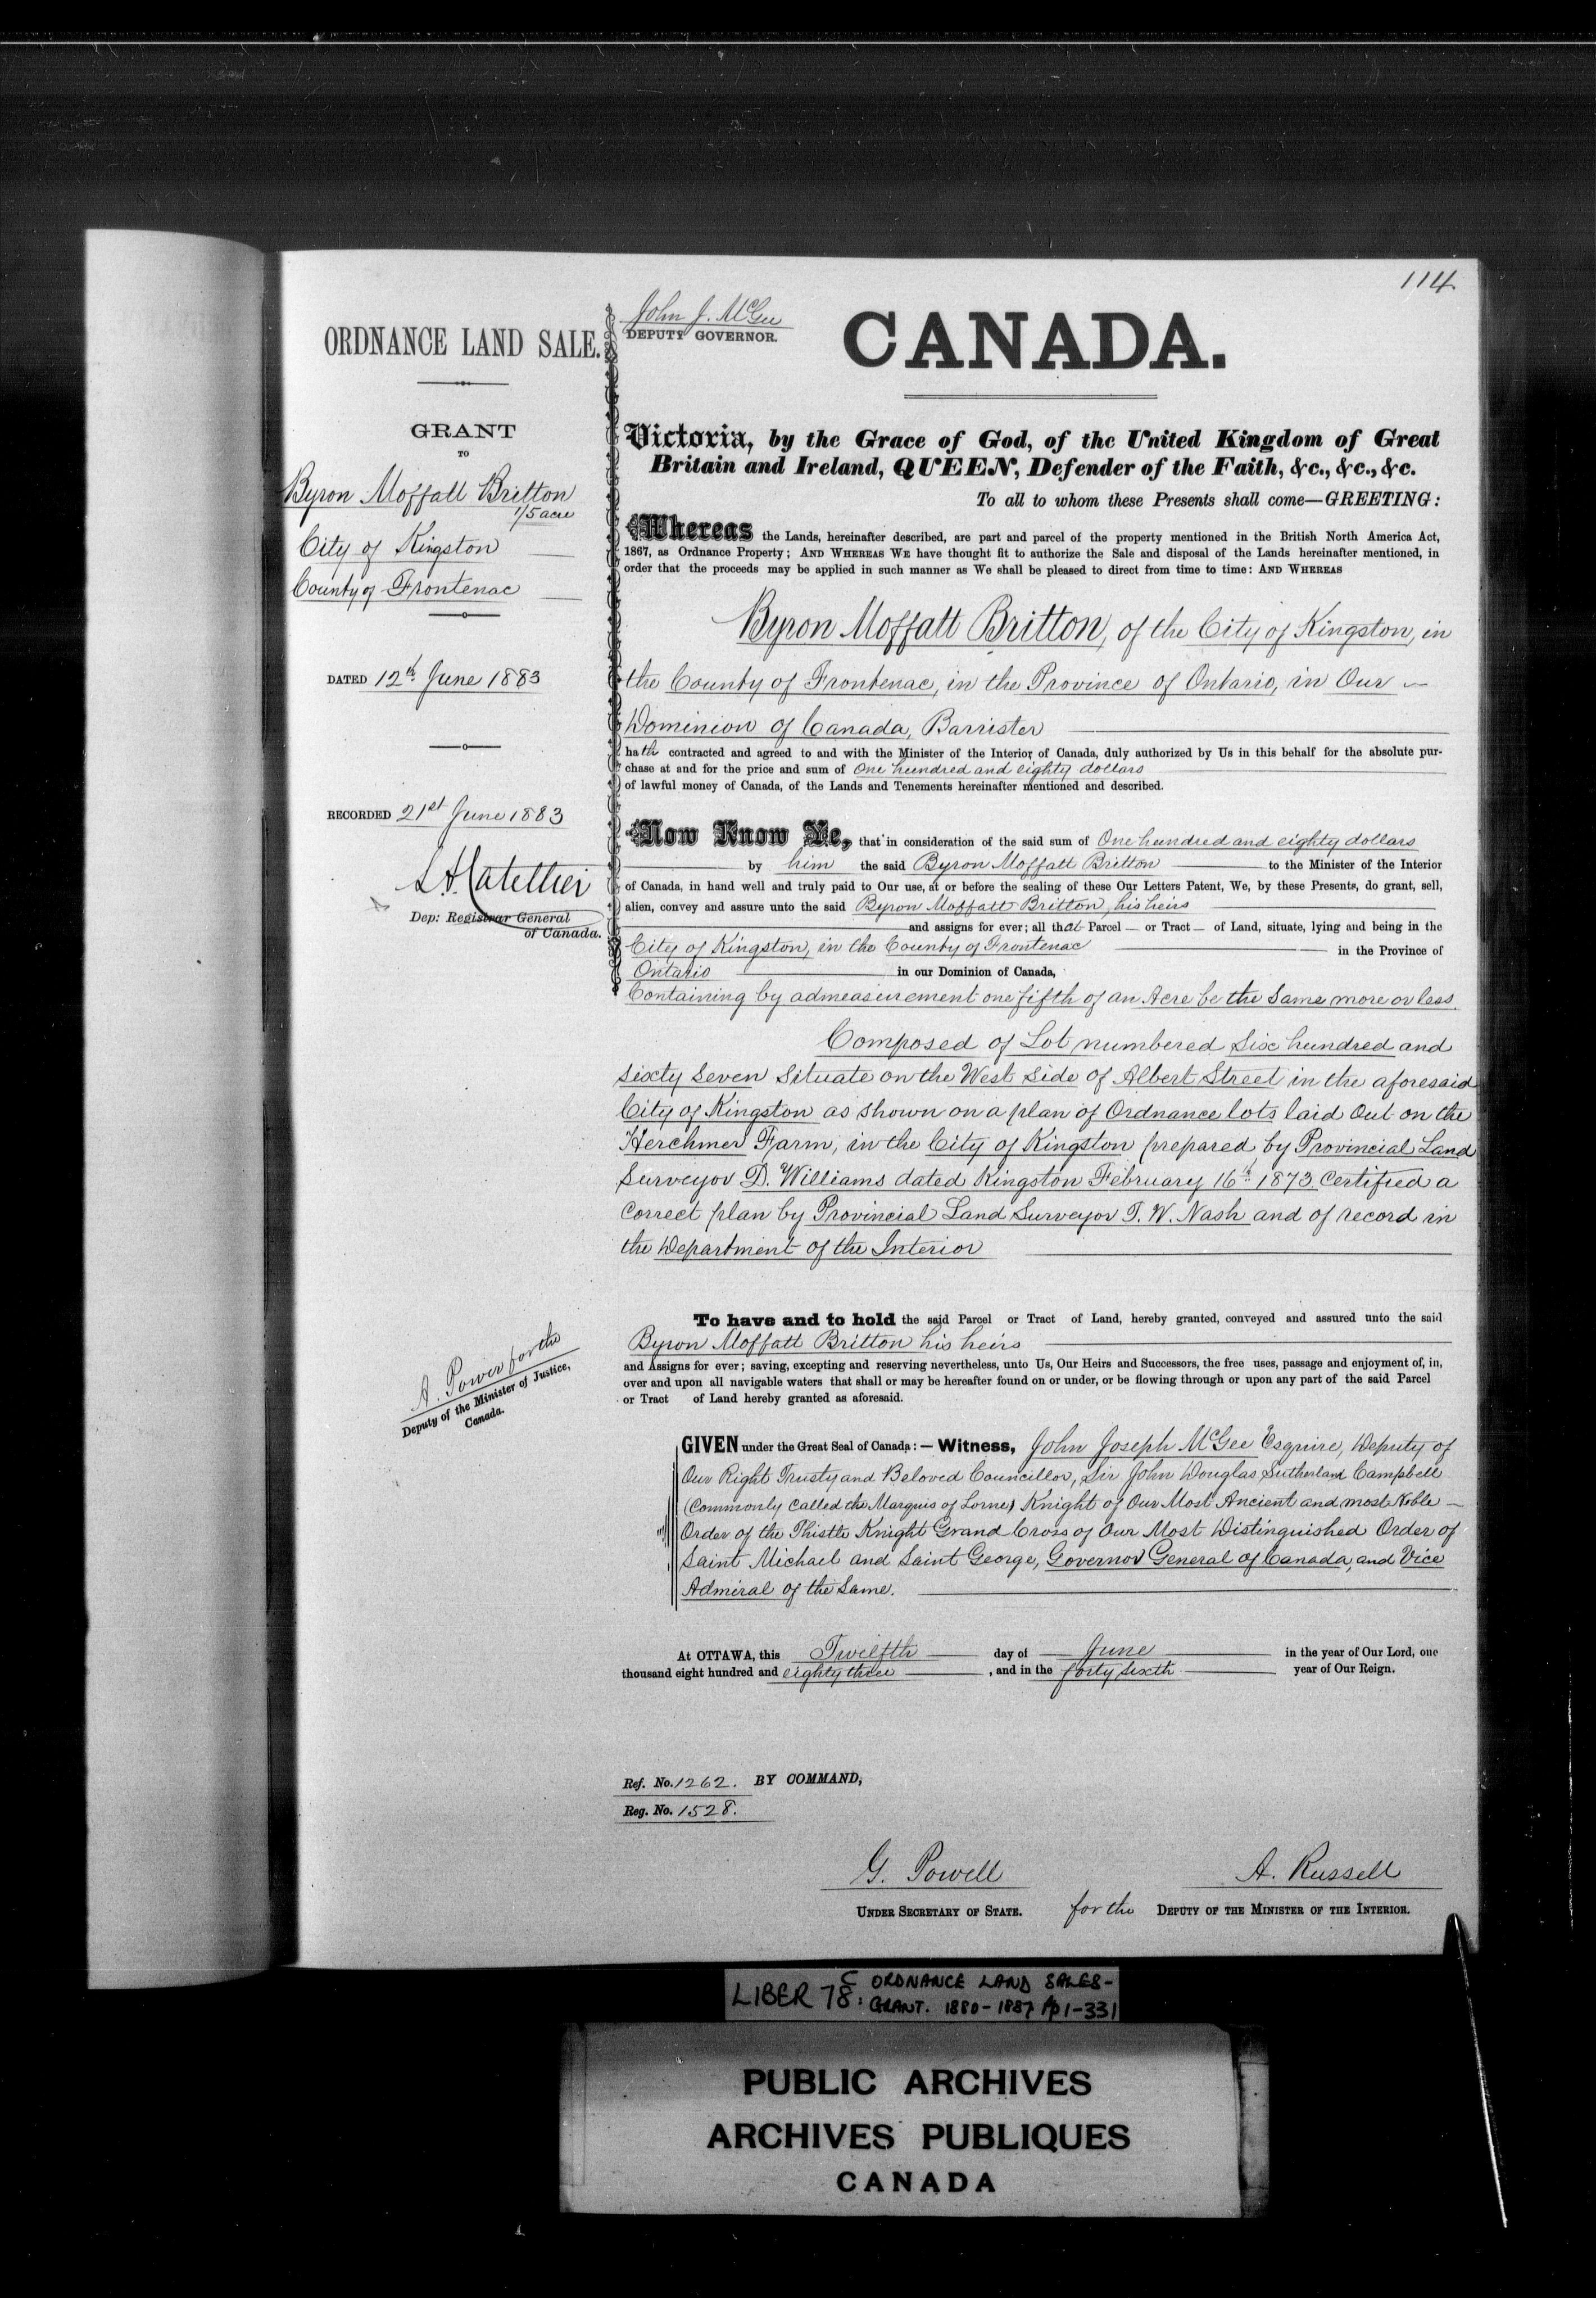 114
ORDNANCE LAND SALE.
GRANT
TO
Byron Moffatt Britton
1/5 acre
City of Kingston
County of Frontenac
DATED 12th June 1883
RECORDED 21st June 1883
Dep: Registrar General
of Canada.
A. Power for the
Deputy of the Minister of Justice,
Canada.
John J. McGee
DEPUTY GOVERNOR.
CANADA.
Victoria, by the Grace of God, of the United Kingdom of Great
Britain and Ireland, QUEEN, Defender of the Faith, &c., &c., &c.
To all to whom these Presents shall come—GREETING:
Whereas the Lands, hereinafter described, are part and parcel of the property mentioned in the British North America Act,
1867, as Ordnance Property; AND WHEREAS WE have thought fit to authorize the Sale and disposal of the Lands hereinafter mentioned, in
order that the proceeds may be applied in such manner as We shall be pleased to direct from time to time: AND WHEREAS
Byron Moffatt Britton, of the City of Kingston, in
the County of Frontenac, in the Province of Ontario, in Our
Dominion of Canada, Barrister
hath contracted and agreed to and with the Minister of the Interior of Canada, duly authorized by Us in this behalf for the absolute pur-
chase at and for the price and sum of One hundred and eighty dollars
of lawful money of Canada, of the Lands and Tenements hereinafter mentioned and described.
Now Know Ye, that in consideration of the said sum of One hundred and eighty dollars
by him the said Byron Moffatt Britton to the Minister of the Interior
of Canada, in hand well and truly paid to Our use, at or before the sealing of these Our Letters Patent, We, by these Presents, do grant, sell,
alien, convey and assure unto the said Byron Moffatt Britton, his heirs
and assigns for ever; all that Parcel — or Tract — of Land, situate, lying and being in the
City of Kingston, in the County of Frontenac in the Province of
Ontario in our Dominion of Canada,
Containing by admeasurement one fifth of an Acre be the Same more or less.
Composed of Lot numbered Six hundred and
Sixty Seven Situate on the West Side of Albert Street in the aforesaid
City of Kingston as shown on a plan of Ordnance lots laid out on the
Herchmer Farm, in the City of Kingston prepared by Provincial Land
Surveyor D. Williams dated Kingston February 16th 1873 Certified a
Correct plan by Provincial Land Surveyor T. W. Nash and of record in
the Department of the Interior
To have and to hold the said Parcel or Tract of Land, hereby granted, conveyed and assured unto the said
Byron Moffatt Britton his heirs
and Assigns for ever; saving, excepting and reserving nevertheless, unto Us, Our Heirs and Successors, the free uses, passage and enjoyment of, in,
over and upon all navigable waters that shall or may be hereafter found on or under, or be flowing through or upon any part of the said Parcel
or Tract of Land hereby granted as aforesaid.
GIVEN under the Great Seal of Canada:— Witness, John Joseph McGee Esquire, Deputy of
Our Right Trusty and Beloved Councillor, Sir John Douglas Sutherland Campbell
(Commonly Called the Marquis of Lorne) Knight of Our Most Ancient and most Noble —
Order of the Thistle Knight Grand Cross of Our Most Distinguished Order of
Saint Michael and Saint George, Governor General of Canada, and Vice
Admiral of the Same.
At OTTAWA, this Twelfth day of June in the year of Our Lord, one
thousand eight hundred and eighty three, and in the forty sixth year of Our Reign.
Ref. No. 1262. BY COMMAND,
Reg. No. 1528.
G. Powell A. Russell
UNDER SECRETARY OF STATE. for the DEPUTY OF THE MINISTER OF THE INTERIOR.
LIBER 78C: ORDNANCE LAND SALES-
GRANT. 1880-1887 pp 1-331
PUBLIC ARCHIVES
ARCHIVES PUBLIQUES
CANADA